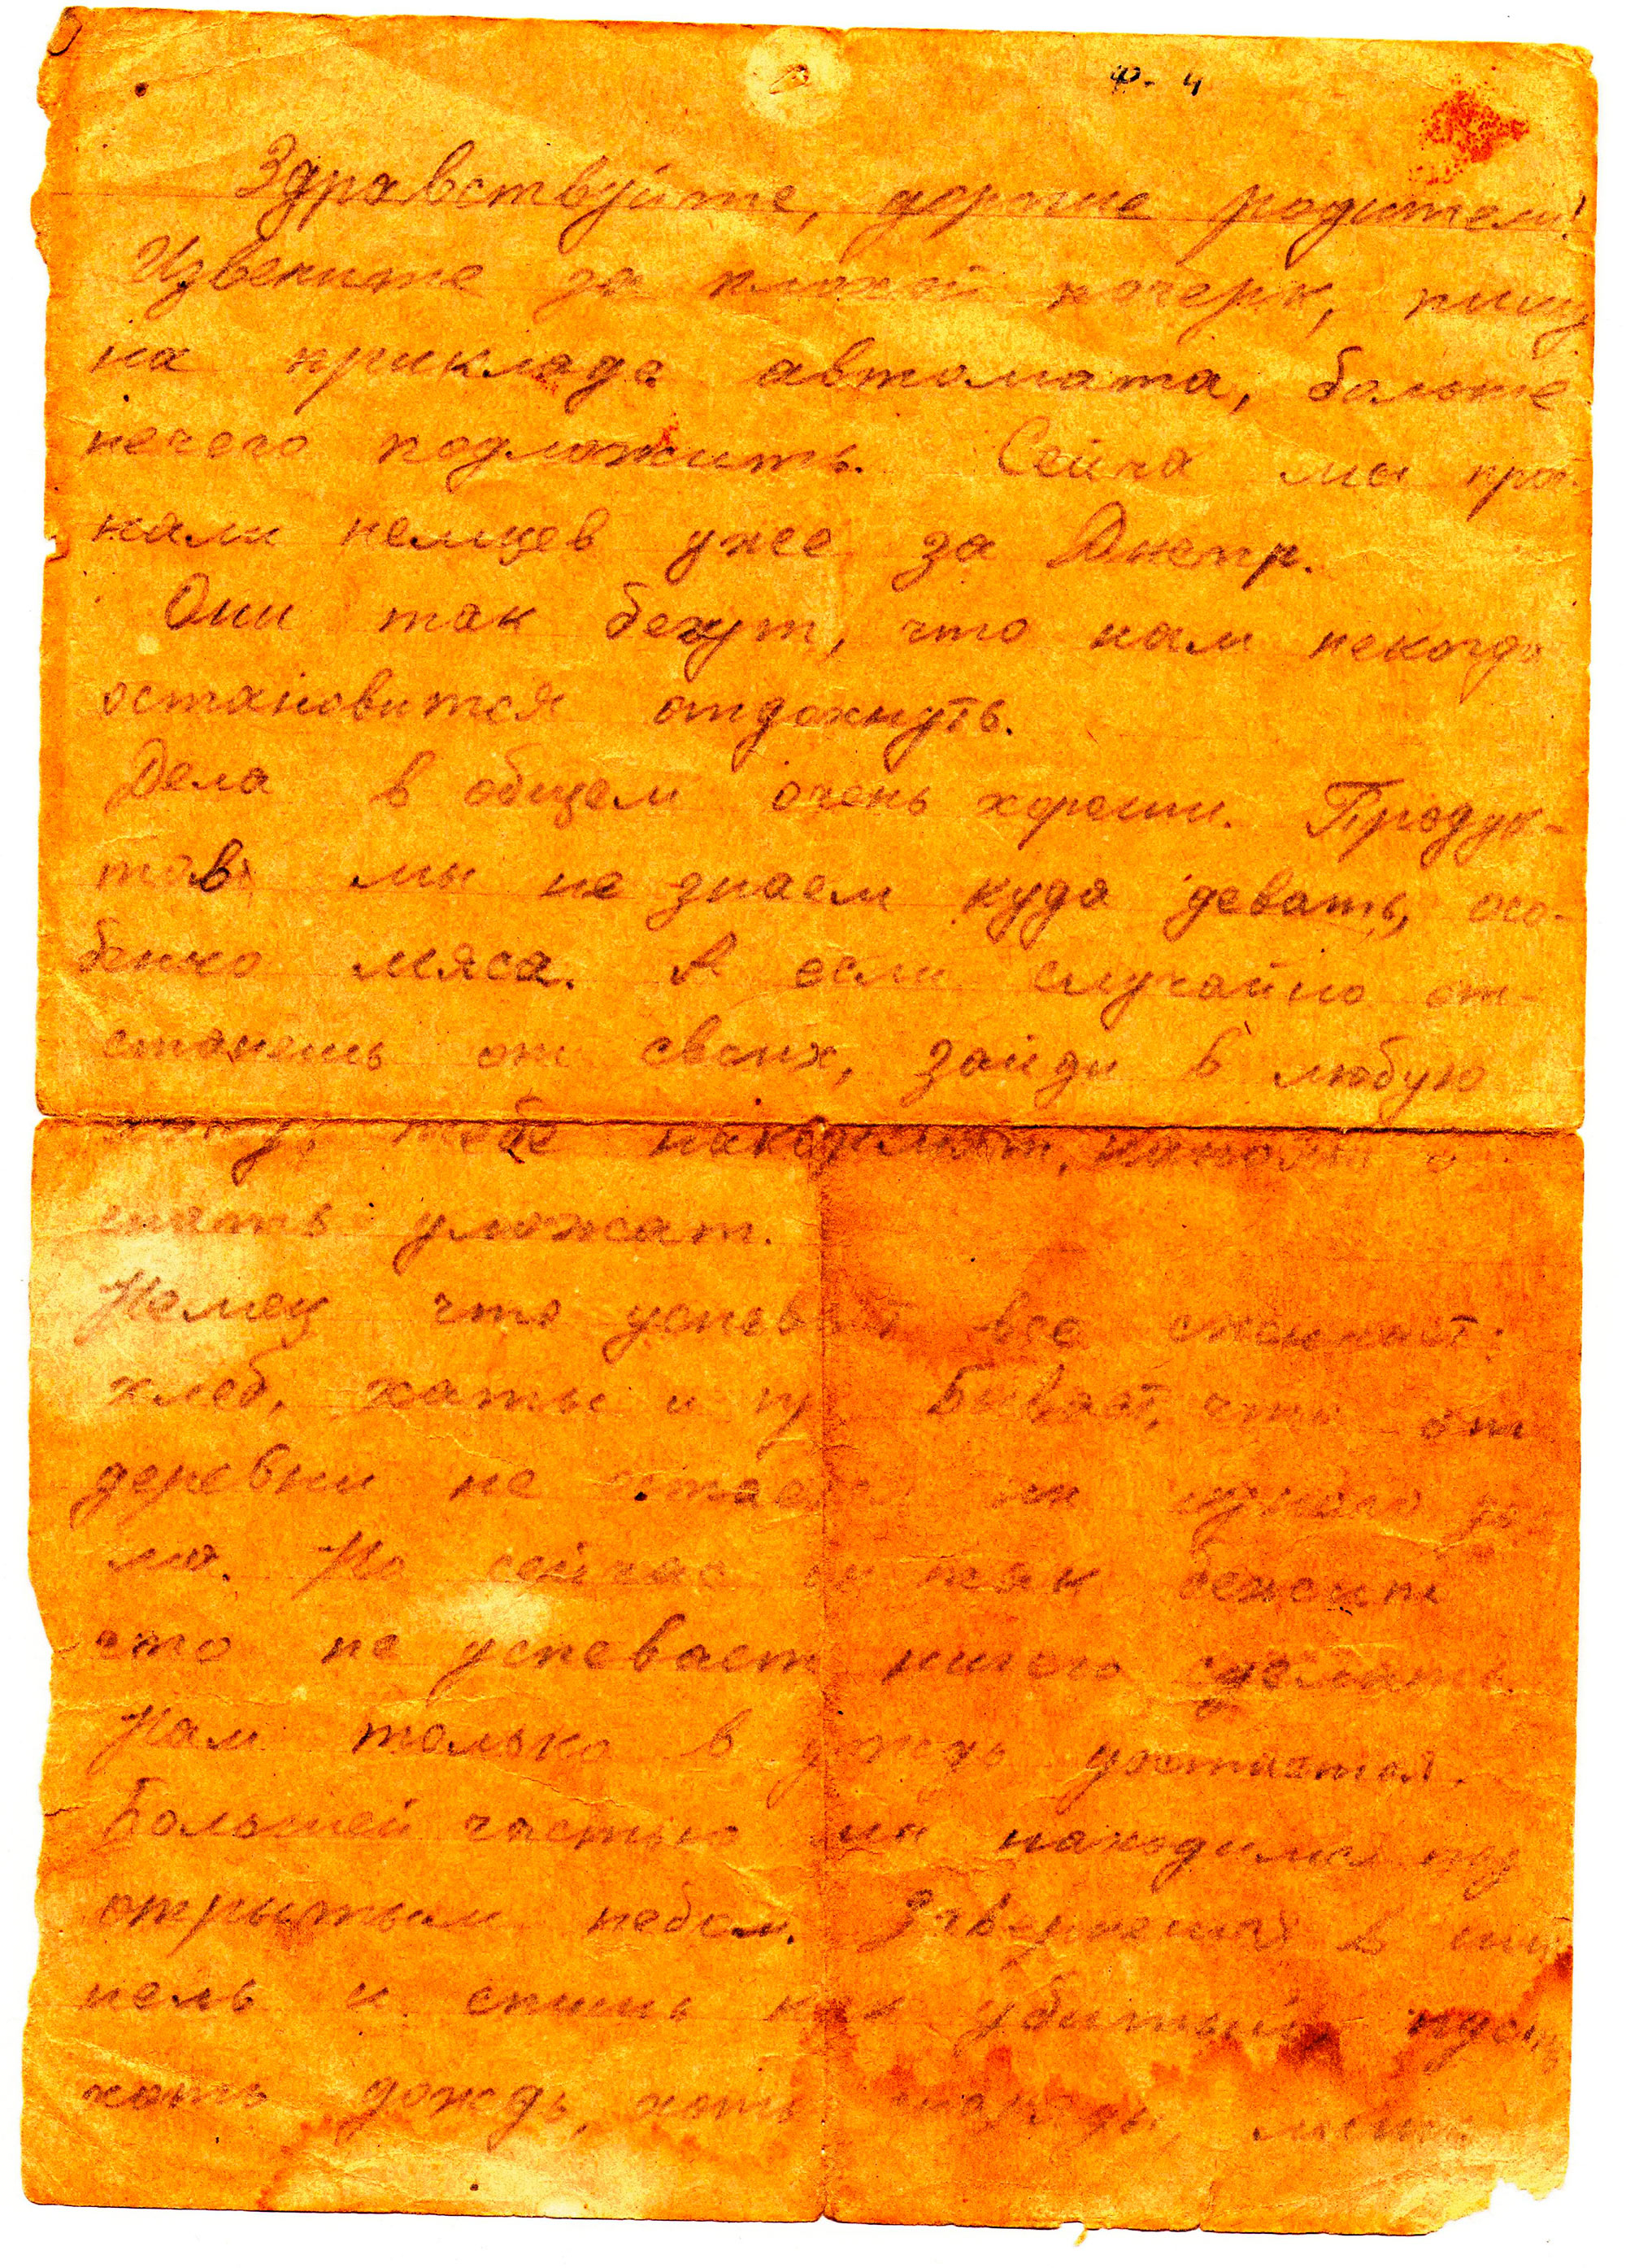 Ф-4
Здравствуйте, дорогие родители!
Извените за плохой почерк, пишу
на прикладе автомата, больше
нечего подложить. Сейча мы прог-
нали немцев уже за Днепр.
Они так бегут, что нам некогда
остановится отдохнуть.
Дела в общем очень хороши. Продук-
тов мы не знаем куда девать, осо-
бенно мяса. А если случайно от-
станешь от своих, зайди в любую
хату, тебе накормят, напоят и
спать уложат.
Немец что успевает все сжигает:
хлеб, хаты и пр Бывает, что от
деревни не остается ни одного до
ма. Но сейчас он так бежит
что не успевает ничего сделать.
Нам только в дождь достается.
Большей частью мы находимся под
открытым небом. Завернешся в ши
нель и спишь как убитый, пусть
хоть дождь, хоть снаряды, мины